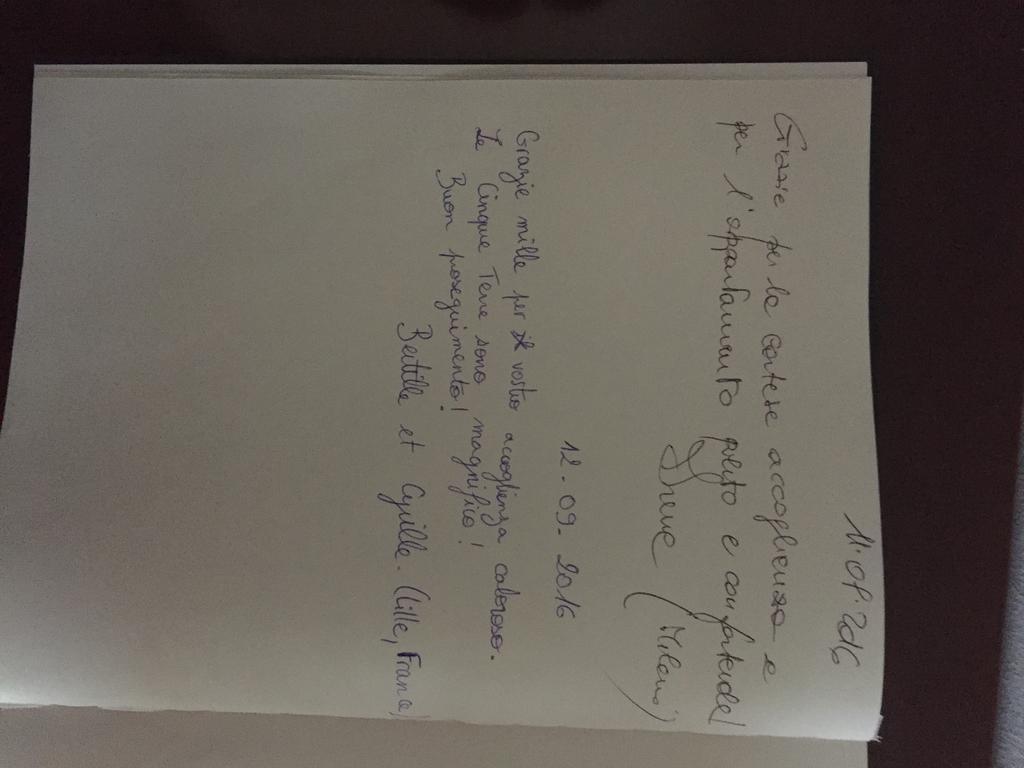 11.09.2016
Grazie per la cortese accoglienza e
per l'appartamento pulito e confortevole!
Irene (Milano)
12-09-2016
Grazie mille per vostro accoglienza caloroso.
Le Cinque Terre sono magnifico!
Buon proseguimento!
Bertille et Cyrille. (Lille, France)